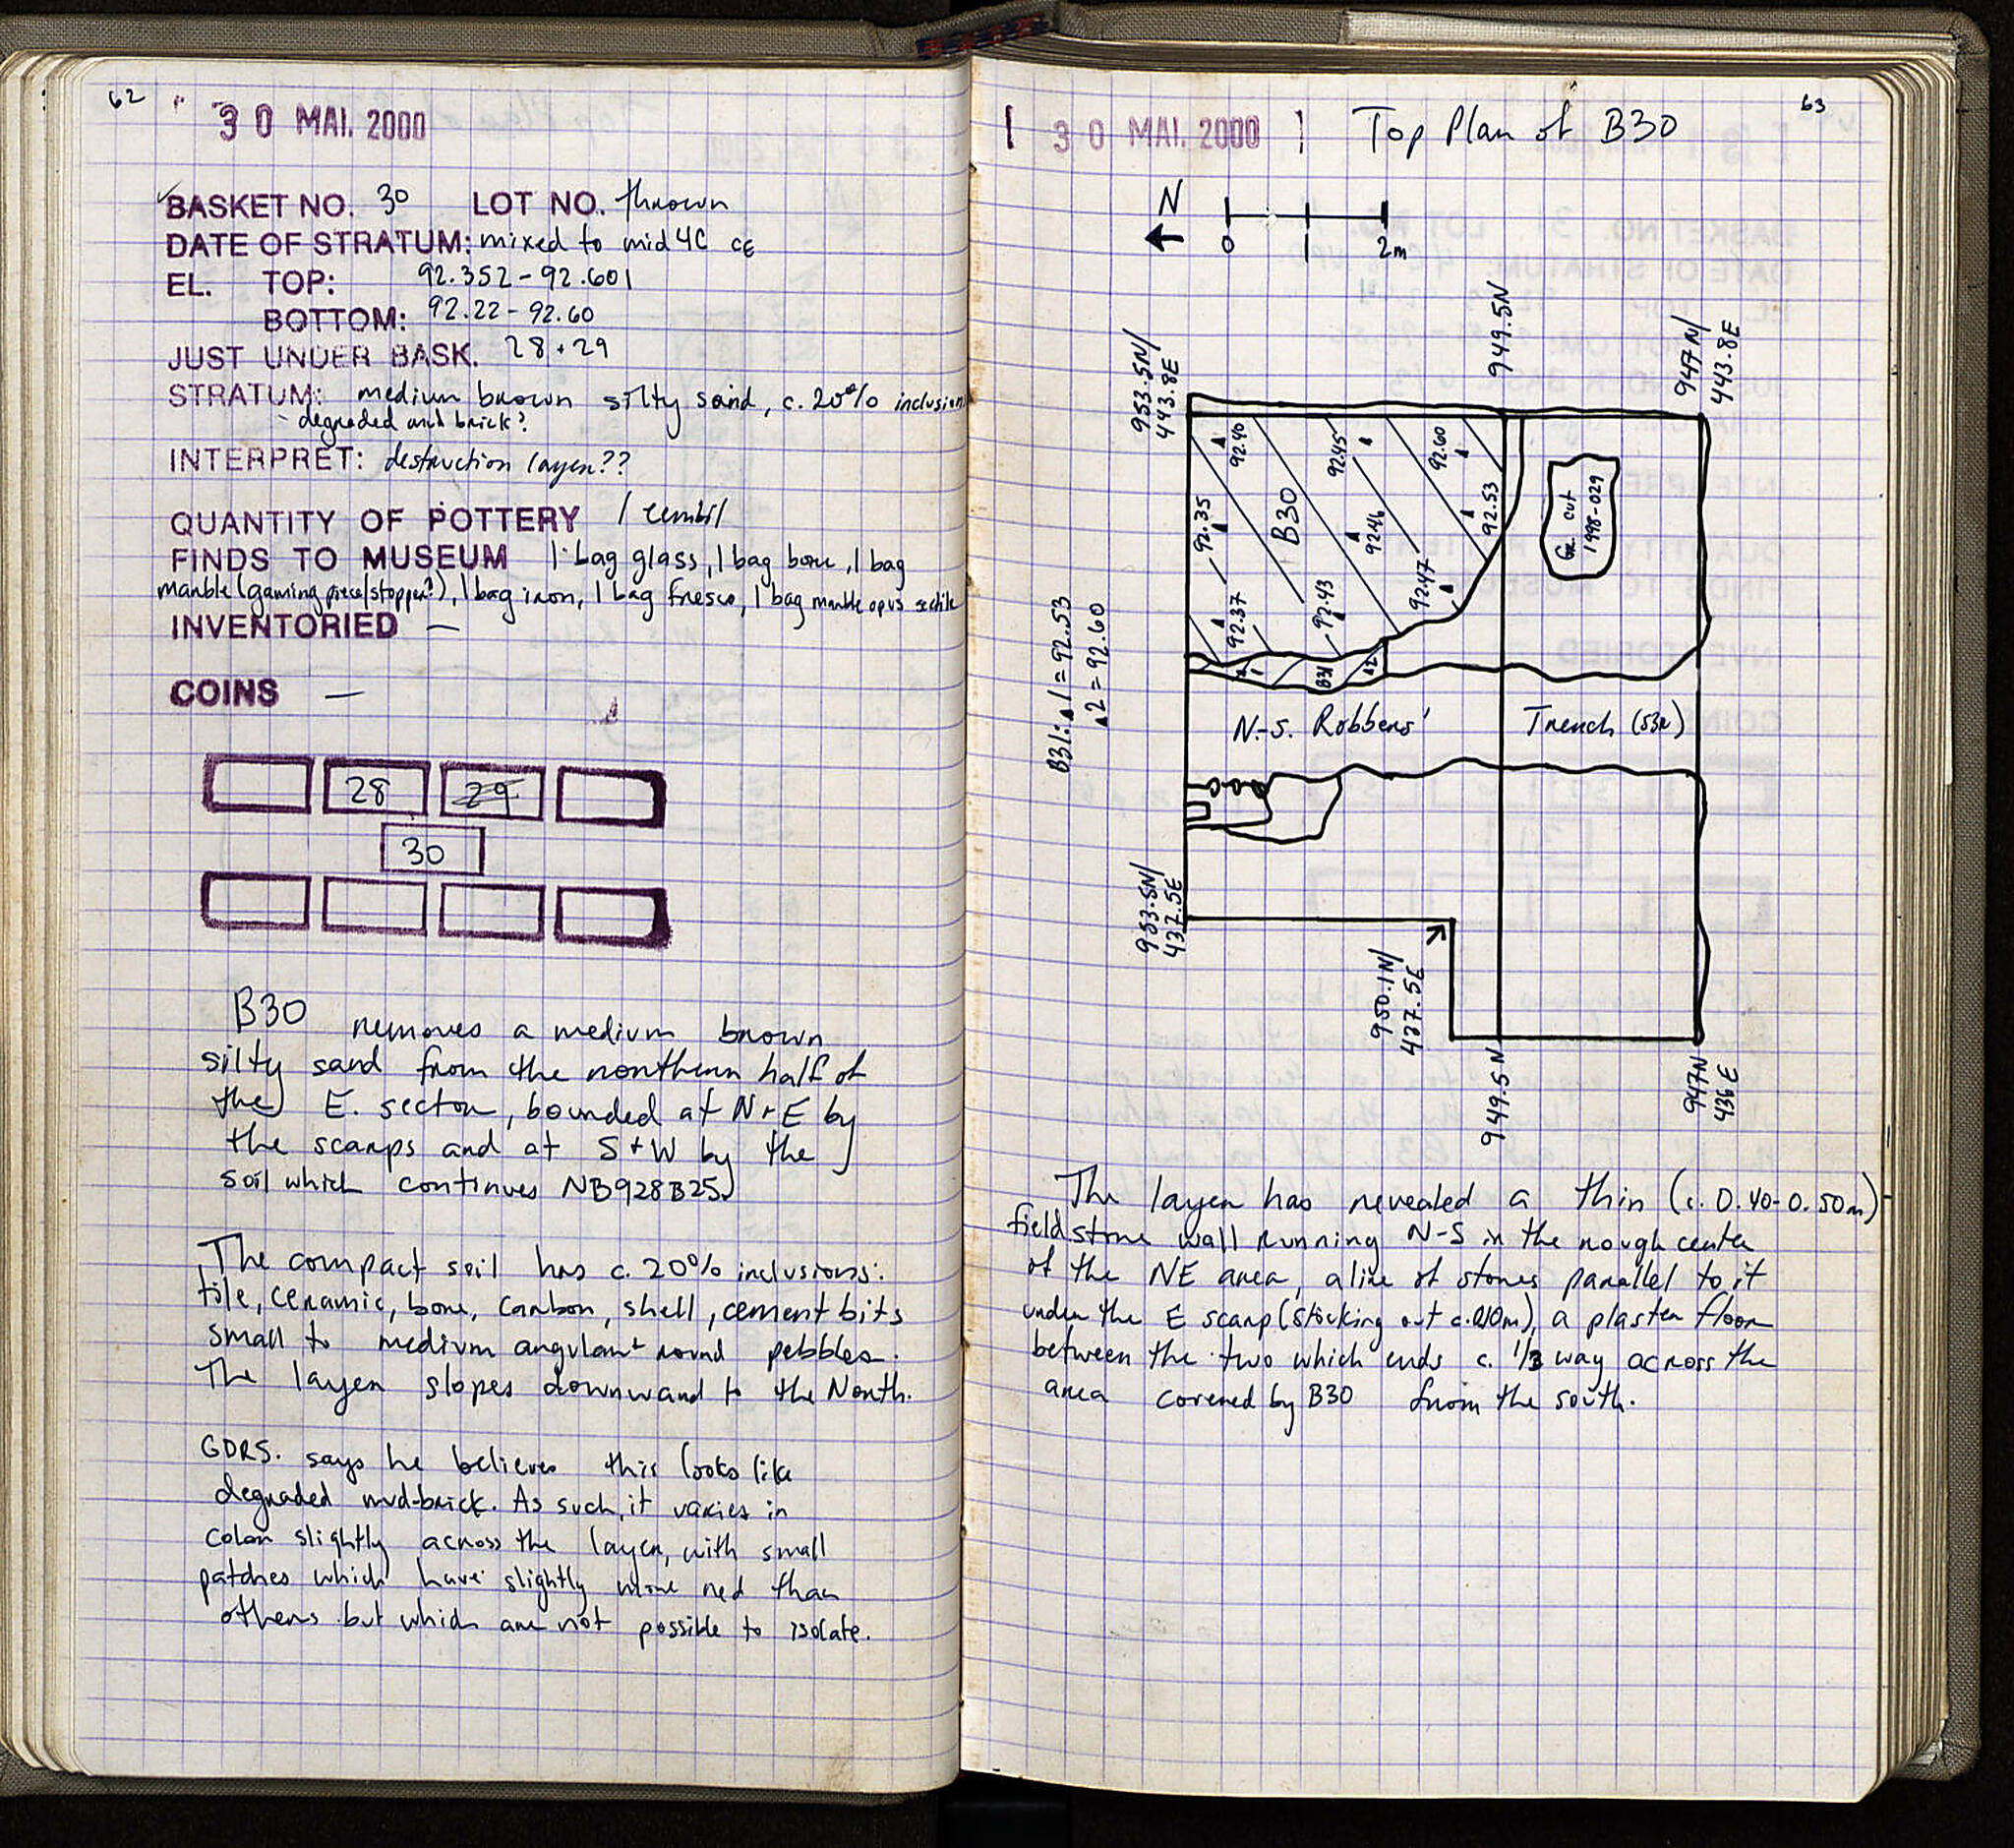 62
30 MAI. 2000
BASKET NO. 30 LOT NO. thrown
DATE OF STRATUM: mixed to mid 4C CE
EL. TOP: 92.352-92.601
BOTTOM: 92.22-92.60
JUST UNDER BASK. 28+29
STRATUM: medium brown silty sand, c. 20% inclusions
- degraded mud brick?
INTERPRET: destruction layer??
QUANTITY OF POTTERY 1 zembil
FINDS TO MUSEUM 1 bag glass, 1 bag bone, 1 bag
marble (gaming piece/stopper?), 1 bag iron, 1 bag fresco, 1 bag marble opus sectile
INVENTORIED —
COINS —
28 29
30
B30 removes a medium brown
silty sand from the northern half of
the E. sector, bounded at N+E by
the scarps and at S+W by the
soil which continues NB928B25
The compact soil has c. 20% inclusions:
tile, ceramic, bone, carbon, shell, cement bits
small to medium angular + round pebbles.
The layer slopes downward to the North.
GDRS. says he believes this looks like
degraded mud-brick. As such, it varies in
color slightly across the layer, with small
patches which have slightly more red than
others but which are not possible to isolate.
63
30 MAI. 2000 Top Plan of B30
N
0 1 2m
953.5N/
443.8E
949.5N
947N/
443.8E
92.40
92.45
92.60
92.35
B30
92.46
92.53
92.37
92.43
92.47
Gr. cut
1998-029
B31: ▲1 = 92.53
▲2 = 92.60
1
B31
▲2
N.-S. Robbers' Trench (53R)
953.5N/
437.5E
950.1N/
437.5E
949.5N
947N
436E
The layer has revealed a thin (c. 0.40-0.50m)
fieldstone wall running N-S in the rough center
of the NE area, a line of stones parallel to it
under the E scarp (sticking out c.010m), a plaster floor
between the two which ends c. 1/3 way across the
area covered by B30 from the south.